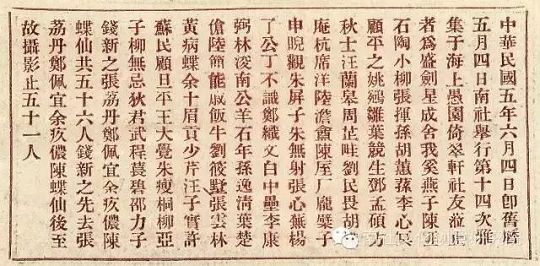 中華民國五年六月四日卽舊曆
五月四日南社舉行第十四次雅
集于海上愚園倚翠軒社友涖
者爲盛劍星成舍我奚燕子陳
石陶小柳張揮孫胡蕙蓀李心
顧平之姚鵷雛葉競生鄧孟碩方
秋士汪蘭皋周芷畦劉民畏胡
庵杭席洋陸澹盦陳厓厂龐檗子
申晛觀朱屏子朱無射張心蕪楊
了公丁不識鄭鐵文白中壘李康
弼林浚南公羊石年孫逸清葉楚
傖陸簡能戚飯牛劉筱墅張雲林
黃病蝶余十眉貢少芹汪子實許
蘇民顧旦平王大覺朱瘦桐柳亞
子柳無忌狄君武程萇碧邵力子
錢新之張荔丹鄭佩宜余疚儂陳
蝶仙共五十六人錢新之先去張
荔丹鄭佩宜余疚儂陳蝶仙後至
故攝影止五十一人